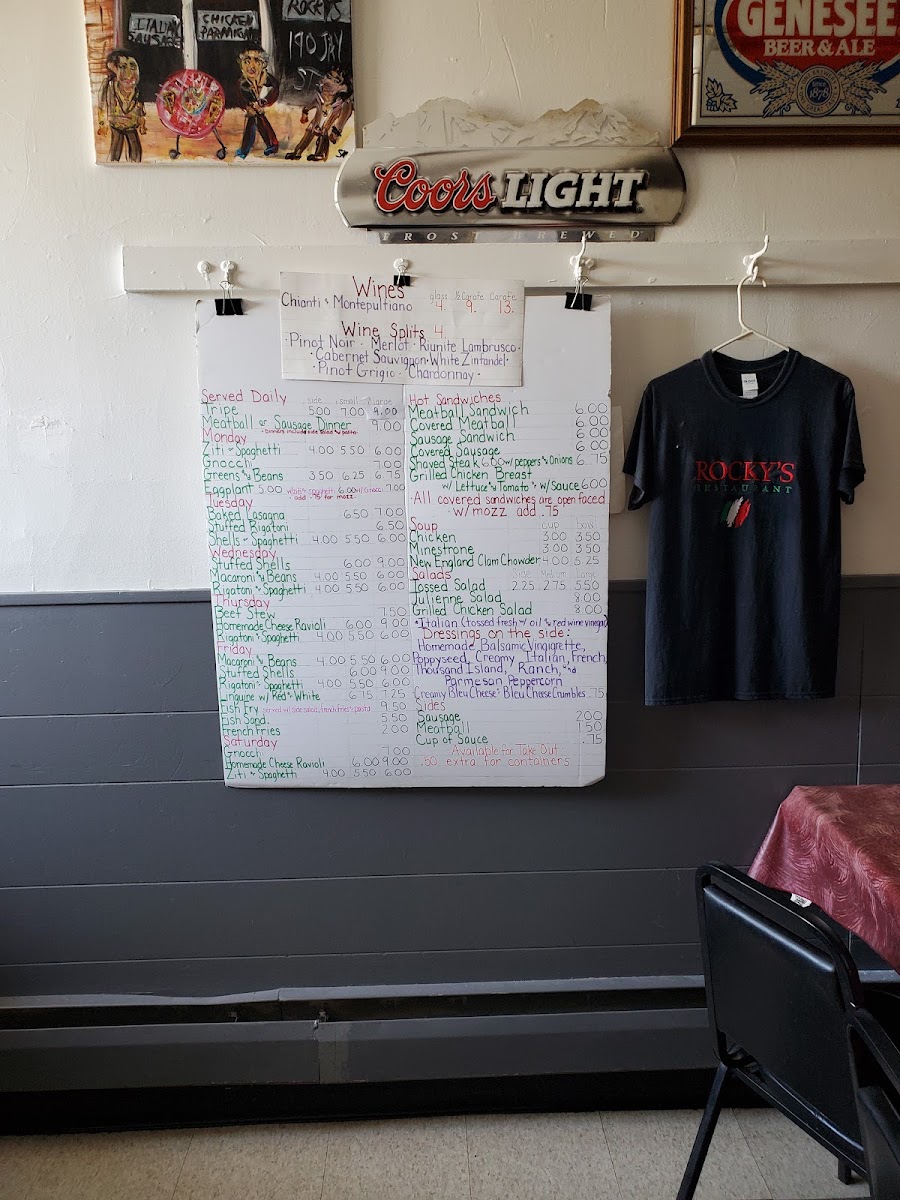 ITALIAN SAUSAGE
CHICKEN PARMIGIAN
ROCKYS
190 JAY
ST
GENESEE
BEER & ALE
SINCE 1878
Coors LIGHT
FROST BREWED
Wines
glass ½ Carafe Carafe
Chianti & Montepultiano 4. 9. 13.
Wine Splits 4.
· Pinot Noir · Merlot · Riunite Lambrusco ·
· Cabernet Sauvignon · White Zinfandel ·
· Pinot Grigio · Chardonnay ·
Served Daily side small large
Tripe 5.00 7.00 9.00
Meatball or Sausage Dinner 9.00
· Dinners include side salad & pasta ·
Monday
Ziti or Spaghetti 4.00 5.50 6.00
Gnocchi 7.00
Greens & Beans 3.50 6.25 6.75
Eggplant 5.00 w/ziti or spaghetti 6.00 w/Gnocci 7.00
· add .75 for mozz.
Tuesday
Baked Lasagna 6.50 7.00
Stuffed Rigatoni 6.50
Shells or Spaghetti 4.00 5.50 6.00
Wednesday
Stuffed Shells 6.00 9.00
Macaroni & Beans 4.00 5.50 6.00
Rigatoni or Spaghetti 4.00 5.50 6.00
Thursday
Beef Stew 7.50
Homemade Cheese Ravioli 6.00 9.00
Rigatoni or Spaghetti 4.00 5.50 6.00
Friday
Macaroni & Beans 4.00 5.50 6.00
Stuffed Shells 6.00 9.00
Rigatoni or Spaghetti 4.00 5.50 6.00
Linguine w/ Red or White 6.75 7.25
Fish Fry served w/ side salad, french fries or pasta 9.50
Fish Sand. 5.50
French Fries 2.00
Saturday
Gnocchi 7.00
Homemade Cheese Ravioli 6.00 9.00
Ziti or Spaghetti 4.00 5.50 6.00
Hot Sandwiches
Meatball Sandwich 6.00
Covered Meatball 6.00
Sausage Sandwich 6.00
Covered Sausage 6.00
Shaved Steak 6.00 w/ peppers & Onions 6.75
Grilled Chicken Breast
w/ Lettuce & Tomato or w/ sauce 6.00
All covered sandwiches are open faced
· w/ mozz add .75
Soup cup bowl
Chicken 3.00 3.50
Minestrone 3.00 3.50
New England Clam Chowder 4.00 5.25
Salads
Tossed Salad 2.25 2.75 5.50
Julienne Salad 8.00
Grilled Chicken Salad 8.00
*Italian (tossed fresh w/ oil & red wine vinegar)
Dressings on the side:
Homemade Balsamic Vinaigrette,
Poppyseed, Creamy Italian, French,
Thousand Island, Ranch, and
Parmesan Peppercorn
Creamy Bleu Cheese or Bleu Cheese Crumbles .75
Sides
Sausage 2.00
Meatball 1.50
Cup of Sauce .75
· Available for Take Out
.50 extra for containers
ROCKY'S
RESTAURANT